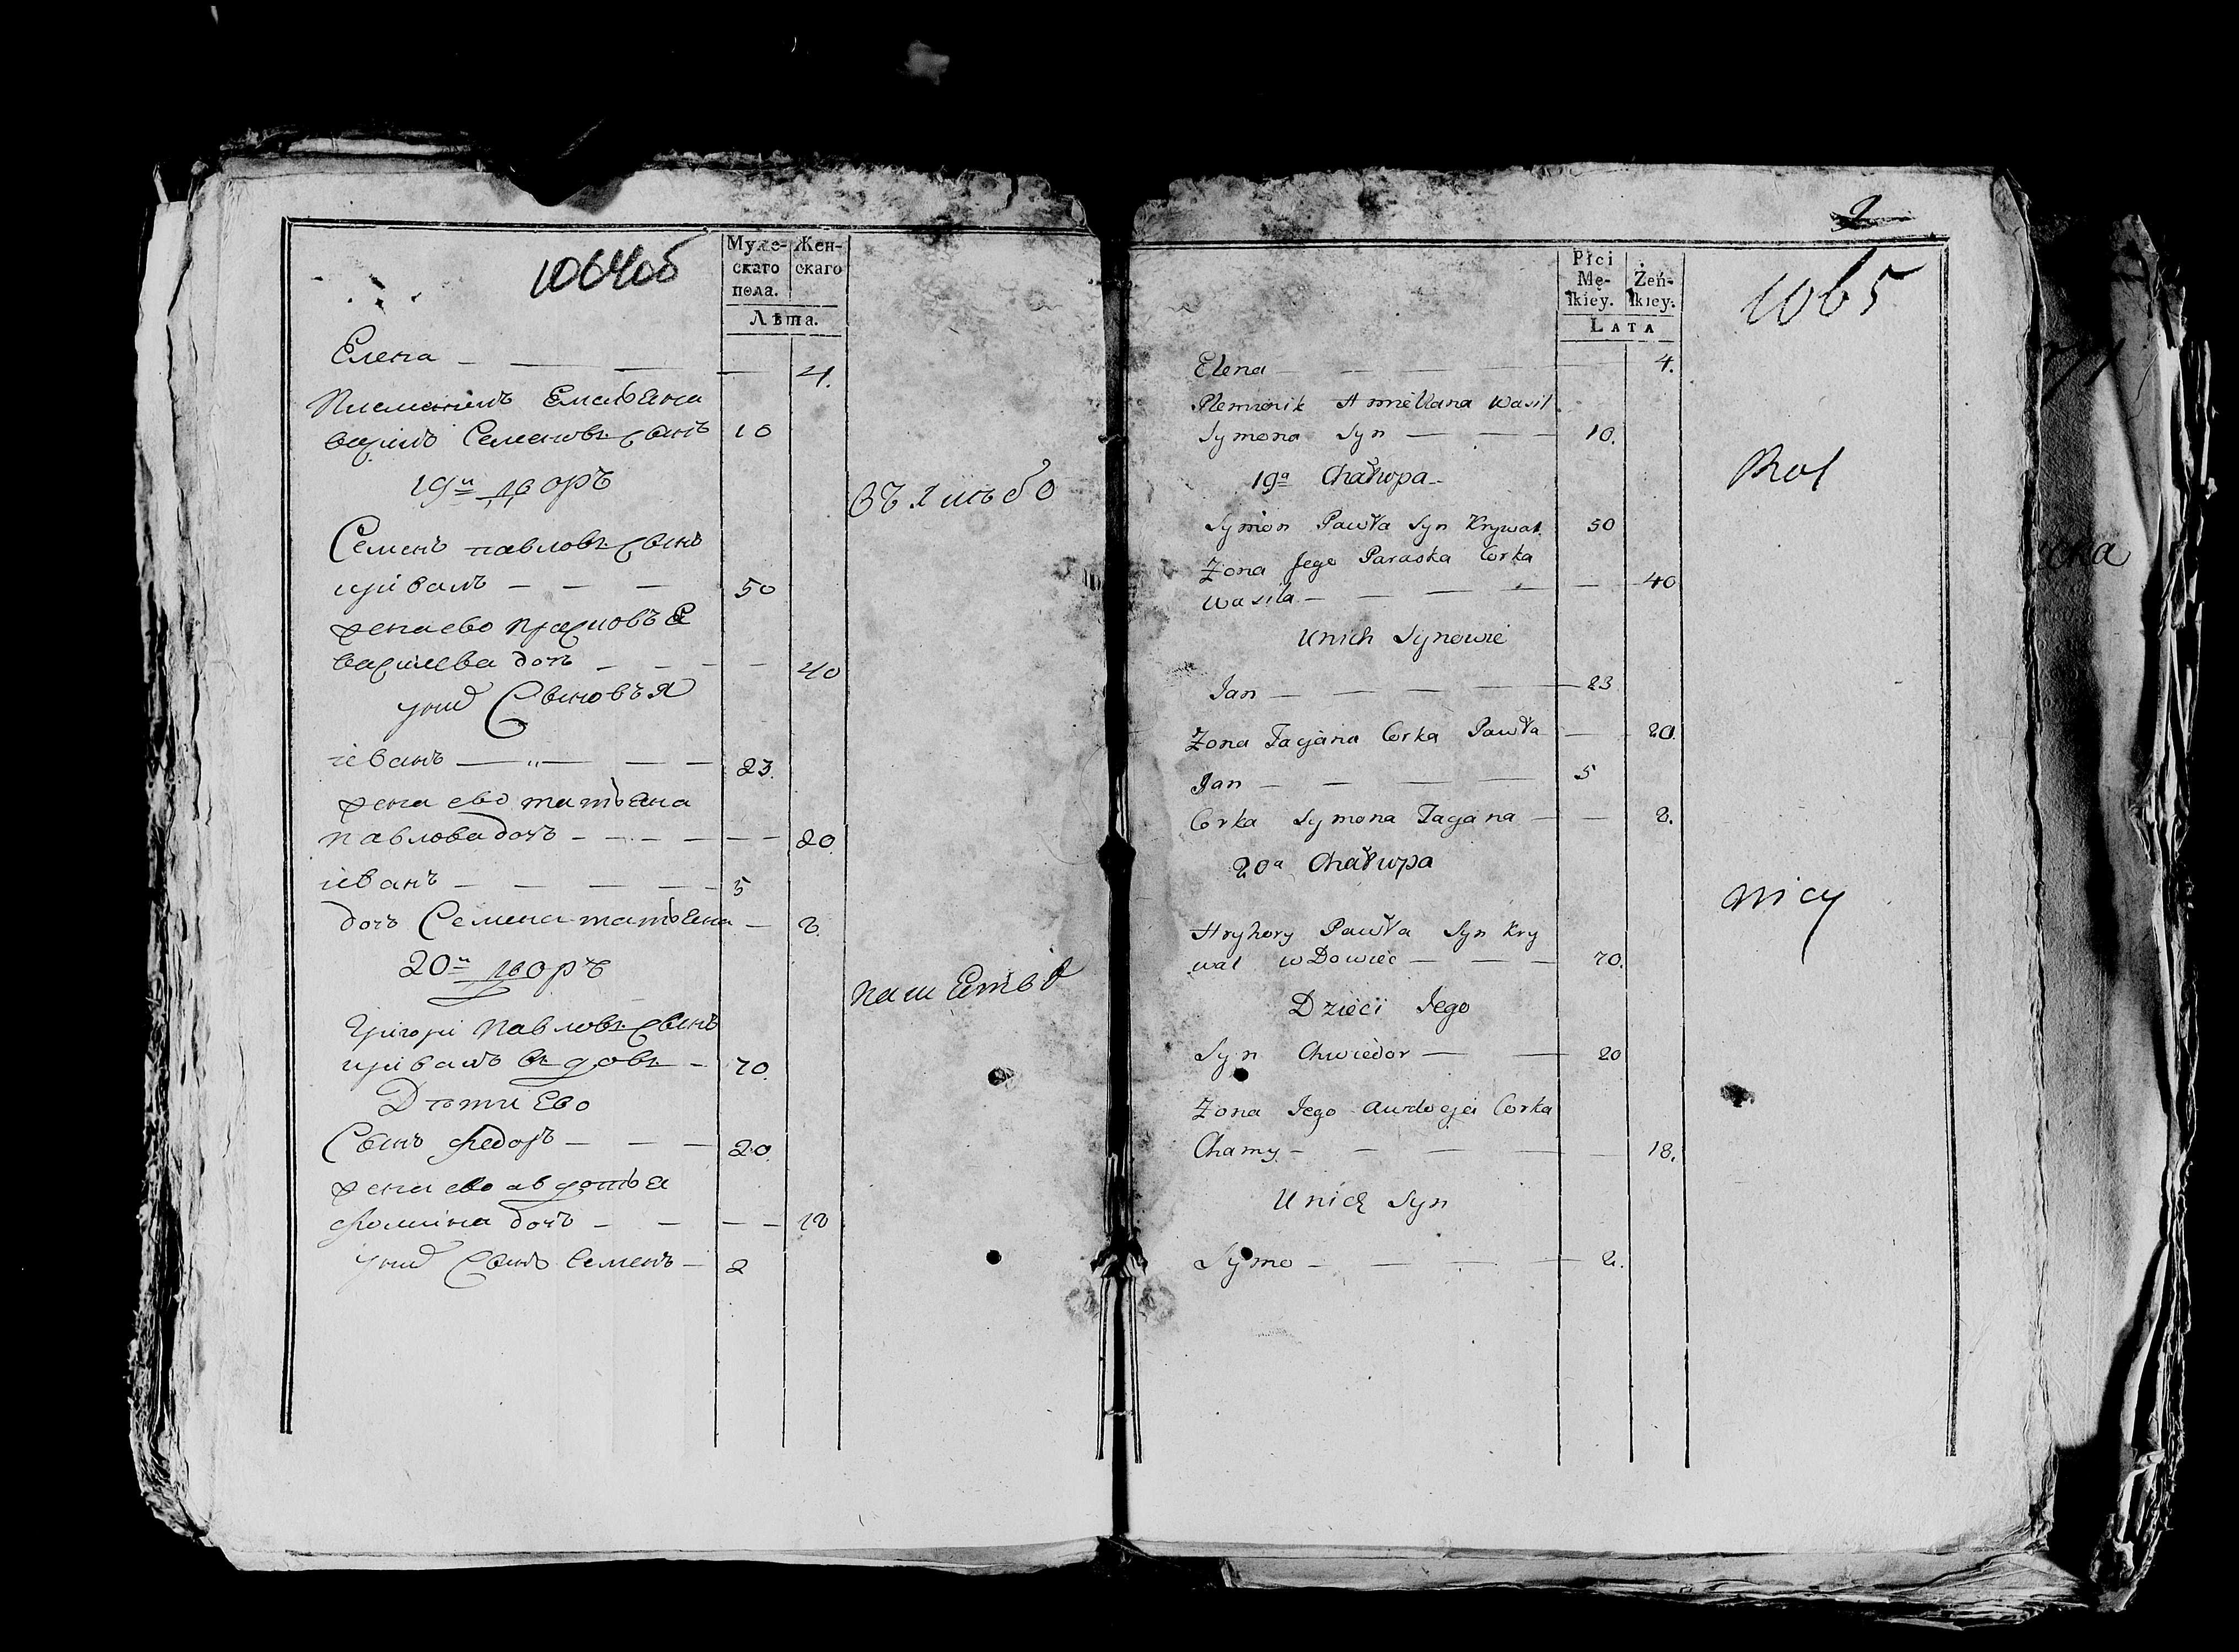 1064об
Муже-
скаго
пола.
Жен-
скаго
Лѣта.
Елена — 4.
Племенникъ Емельяна
василь Семеновъ сынъ 10
19й дворъ
въ хлѣбо
Семенъ павловъ сынъ
криваль — 50
жена ево
василева дочь — 40
уних Сыновья
іванъ — 23.
жена ево татьяна
павлова дочь — 20.
іванъ — 5
дочь Семена татьяна — 8.
20й дворъ
пашества
Григори павловъ сынъ
криваль вдовъ — 70.
Дѣти Ево
Сынъ федоръ — 20.
жена ево авдотья
фомина дочь — 18
уних Сынъ семенъ — 2
2
1065
Płci
Mę-
ſkiey.
Żeń-
ſkiey.
LATA
Elena — 4.
Plemienik Amiellana Wasil
Symona Syn — 10.
19a Chałupa
Rol
Symon Pawła Syn Krywal 50
Zona Jego Paraska Corka
Wasila — 40
Unich Synowie
Jan — 23
Zona Taćjana Corka Pawła — 20.
Jan — 5
Corka Symona Tagana — 8.
20a Chałupa
nicy
Hryhory Pawła Syn Kry
wal wDowiec — 70.
Dzieci Jego
Syn Chwiedor — 20
Zona Jego Awdoeja Corka
Chamy — 18.
Unich Syn
Symo — 2.